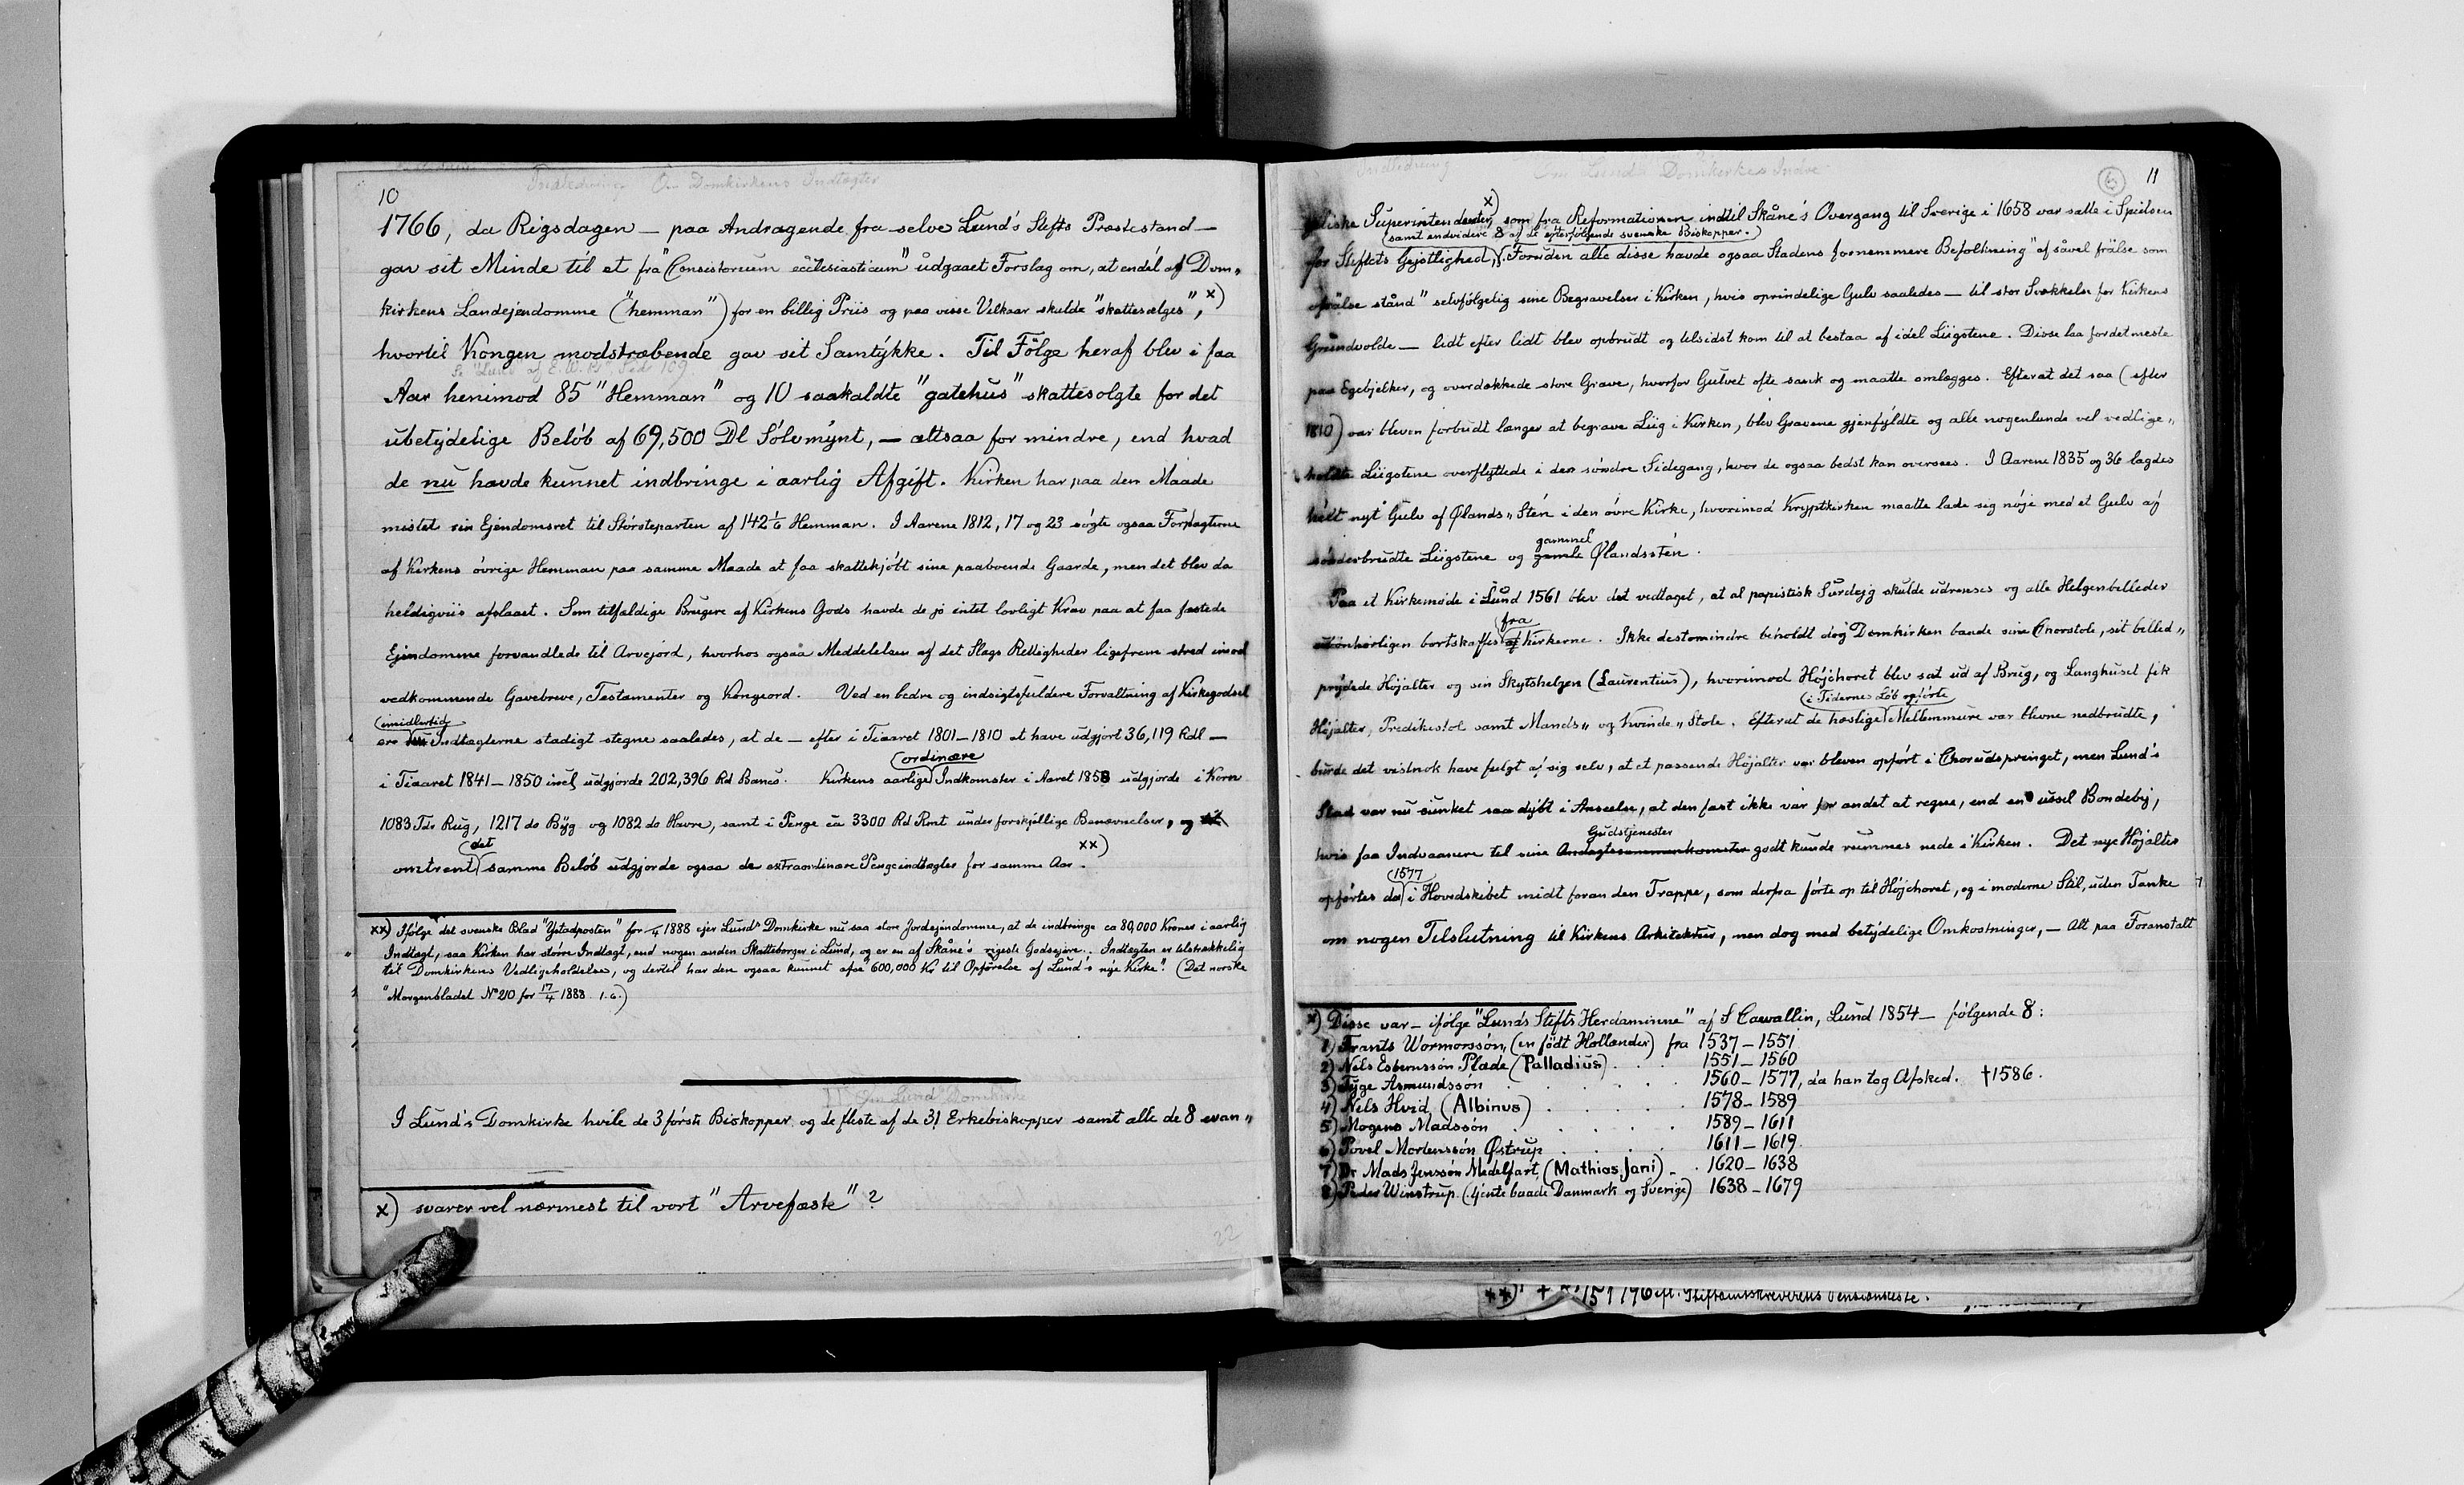 Indledning Om Domkirkens Indtægter
10
1766, da Rigsdagen — paa Andragende fra selve Lund's Stifts Præstestand —
gav sit Minde til et fra "Consistorium ecclesiasticum" udgaaet Forslag om, at endel af Dom„
kirkens Landejendomme ("hemman") for en billig Priis og paa visse Vilkaar skulde "skattesælges", x)
hvortil Kongen modstræbende gav sit Samtykke. Til Følge heraf blev i faa
Se "Lund" af E. W. Side 109
Aar henimod 85 "Hemman" og 10 saakaldte "gatehus" skattesolgte for det
ubetydelige Beløb af 69,500 Dl Sølvmynt, — altsaa for mindre, end hvad
de nu havde kunnet indbringe i aarlig Afgift. Kirken har paa den Maade
mistet sin Ejendomsret til Størsteparten af 142 1/6 Hemman. I Aarene 1812, 17 og 23 søgte ogsaa Forpagterne
af Kirkens øvrige Hemman paa samme Maade at faa skattekjøbt sine paaboende Gaarde, men det blev da
heldigviis afslaaet. Som tilfældige Brugere af Kirkens Gods havde de jo intet lovligt Krav paa at faa fæstede
Ejendomme forvandlede til Arvejord, hvorhos ogsaa Meddelelsen af det Slags Rettigheder ligefrem stred imod
vedkommende Gavebreve, Testamenter og Kongeord. Ved en bedre og indsigtsfuldere Forvaltning af Kirkegodset
imidlertid
ere Indtægterne stadigt stegne saaledes, at de — efter i Tiaaret 1801–1810 at have udgjort 36,119 Rdl —
ordinære
i Tiaaret 1841–1850 incl. udgjorde 202,396 Rd Banco. Kirkens aarlige Indkomster i Aaret 1858 udgjorde i Korn
1083 Tdr Rug, 1217 do Byg og 1082 do Havre, samt i Penge ca 3300 Rd Rmt under forskjellige Benævnelser, og
det
omtrent samme Beløb udgjorde ogsaa de extraordinære Pengeindtægter for samme Aar. xx)
xx) Ifølge det svenske Blad "Ystadposten" for /4 1888 ejer Lunds Domkirke nu saa store Jordejendomme, at de indbringe ca 80,000 Kroner i aarlig
Indtægt, saa Kirken har større Indtægt, end nogen anden Skatteborger i Lund, og er en af Skåne's rigeste Godsejere. Indtægten er tilstrækkelig
til Domkirkens Vedligeholdelse, og dertil har den ogsaa kunnet afse "600,000 Kr til Opførelse af Lund's nye Kirke". (Det norske
"Morgenbladet No 210 for 17/4 1888 1.6.)
II Om Lund Domkirke
I Lund's Domkirke hvile de 3 første Biskopper og de fleste af de 31 Erkebiskopper samt alle de 8 evan„
x) svarer vel nærmest til vort "Arvefæste"?
22
Indledning Om Lund's Domkirkes Indre
6 11
geliske Superintendenter, x) som fra Reformationen indtil Skåne's Overgang til Sverige i 1658 var satte i Spidsen
(samt endvidere 8 af de efterfølgende svenske Biskopper.)
for Stiftets Gejstlighed, Foruden alle disse havde ogsaa Stadens fornemmere Befolkning "af såvel frälse som
ofrälse stånd" selvfølgelig sine Begravelser i Kirken, hvis oprindelige Gulv saaledes — til stor Svækkelse for Kirkens
Grundvolde — lidt efter lidt blev opbrudt og tilsidst kom til at bestaa af idel Liigstene. Disse laa fordetmeste
paa Egebjelker, og overdækkede store Grave, hvorfor Gulvet ofte sank og maatte omlægges. Efterat det saa (efter
1810) var bleven forbudt længer at begrave Liig i Kirken, blev Gravene gjenfyldte og alle nogenlunde vel vedlige„
holdte Liigstene overflyttede i den søndre Sidegang, hvor de ogsaa bedst kan oversees. I Aarene 1835 og 36 lagdes
helt nyt Gulv af Ølands„Sten i den øvre Kirke, hvorimod Kryptkirken maatte lade sig nøje med et Gulv af
gammel
sønderbrudte Liigstene og gamle Ølandssten.
Paa et Kirkemøde i Lund 1561 blev det vedtaget, at al papistisk Surdejg skulde udrenses og alle Helgenbilleder
fra
uønhørligen bortskaffes af Kirkerne. Ikke destomindre beholdt dog Domkirken baade sine Chorstole, sit billed„
prydede Højalter og sin Skytshelgen (Laurentius), hvorimod Højchoret blev sat ud af Brug, og Langhuset fik
(i Tidernes Løb opførte
Højalter, Prædikestol samt Mands„ og Kvinde„Stole. Efterat de hæslige Mellemmure var blevne nedbrudte,
burde det vistnok have fulgt af sig selv, at et passende Højalter var bleven opført i Chorudspringet, men Lund's
Stad var nu sunket saa dybt i Anseelse, at den fast ikke var for andet at regne, end en ussel Bondeby,
Gudstjenester
hvis faa Indvaanere til sine Andagtssammenkomster godt kunde rummes nede i Kirken. Det nye Højalter
1577
opførtes da i Hovedskibet midt foran den Trappe, som derfra førte op til Højchoret, og i moderne Stil, uden Tanke
om nogen Tilslutning til Kirkens Arkitektur, men dog med betydelige Omkostninger, — Alt paa Foranstalt
x) Disse var — ifølge "Lunds Stifts Herdaminne" af S Cawallin, Lund 1854 — følgende 8:
1) Frants Wormorssøn, (en født Hollænder) fra 1537–1551
2) Niels Esbernssøn Plade (Palladius) . . . 1551–1560
3) Tyge Asmundssøn . . . . 1560–1577, da han tog Afsked. †1586.
4) Niels Hvid (Albinus) . . . . 1578–1589
5) Mogens Madssøn . . . . 1589–1611
6) Povel Mortenssøn Østrup . . . . 1611–1619
7) Dr Mads Jenssøn Medelfart, (Mathias Jani) . . 1620–1638
8) Peder Winstrup. (tjente baade Danmark og Sverige) 1638–1679